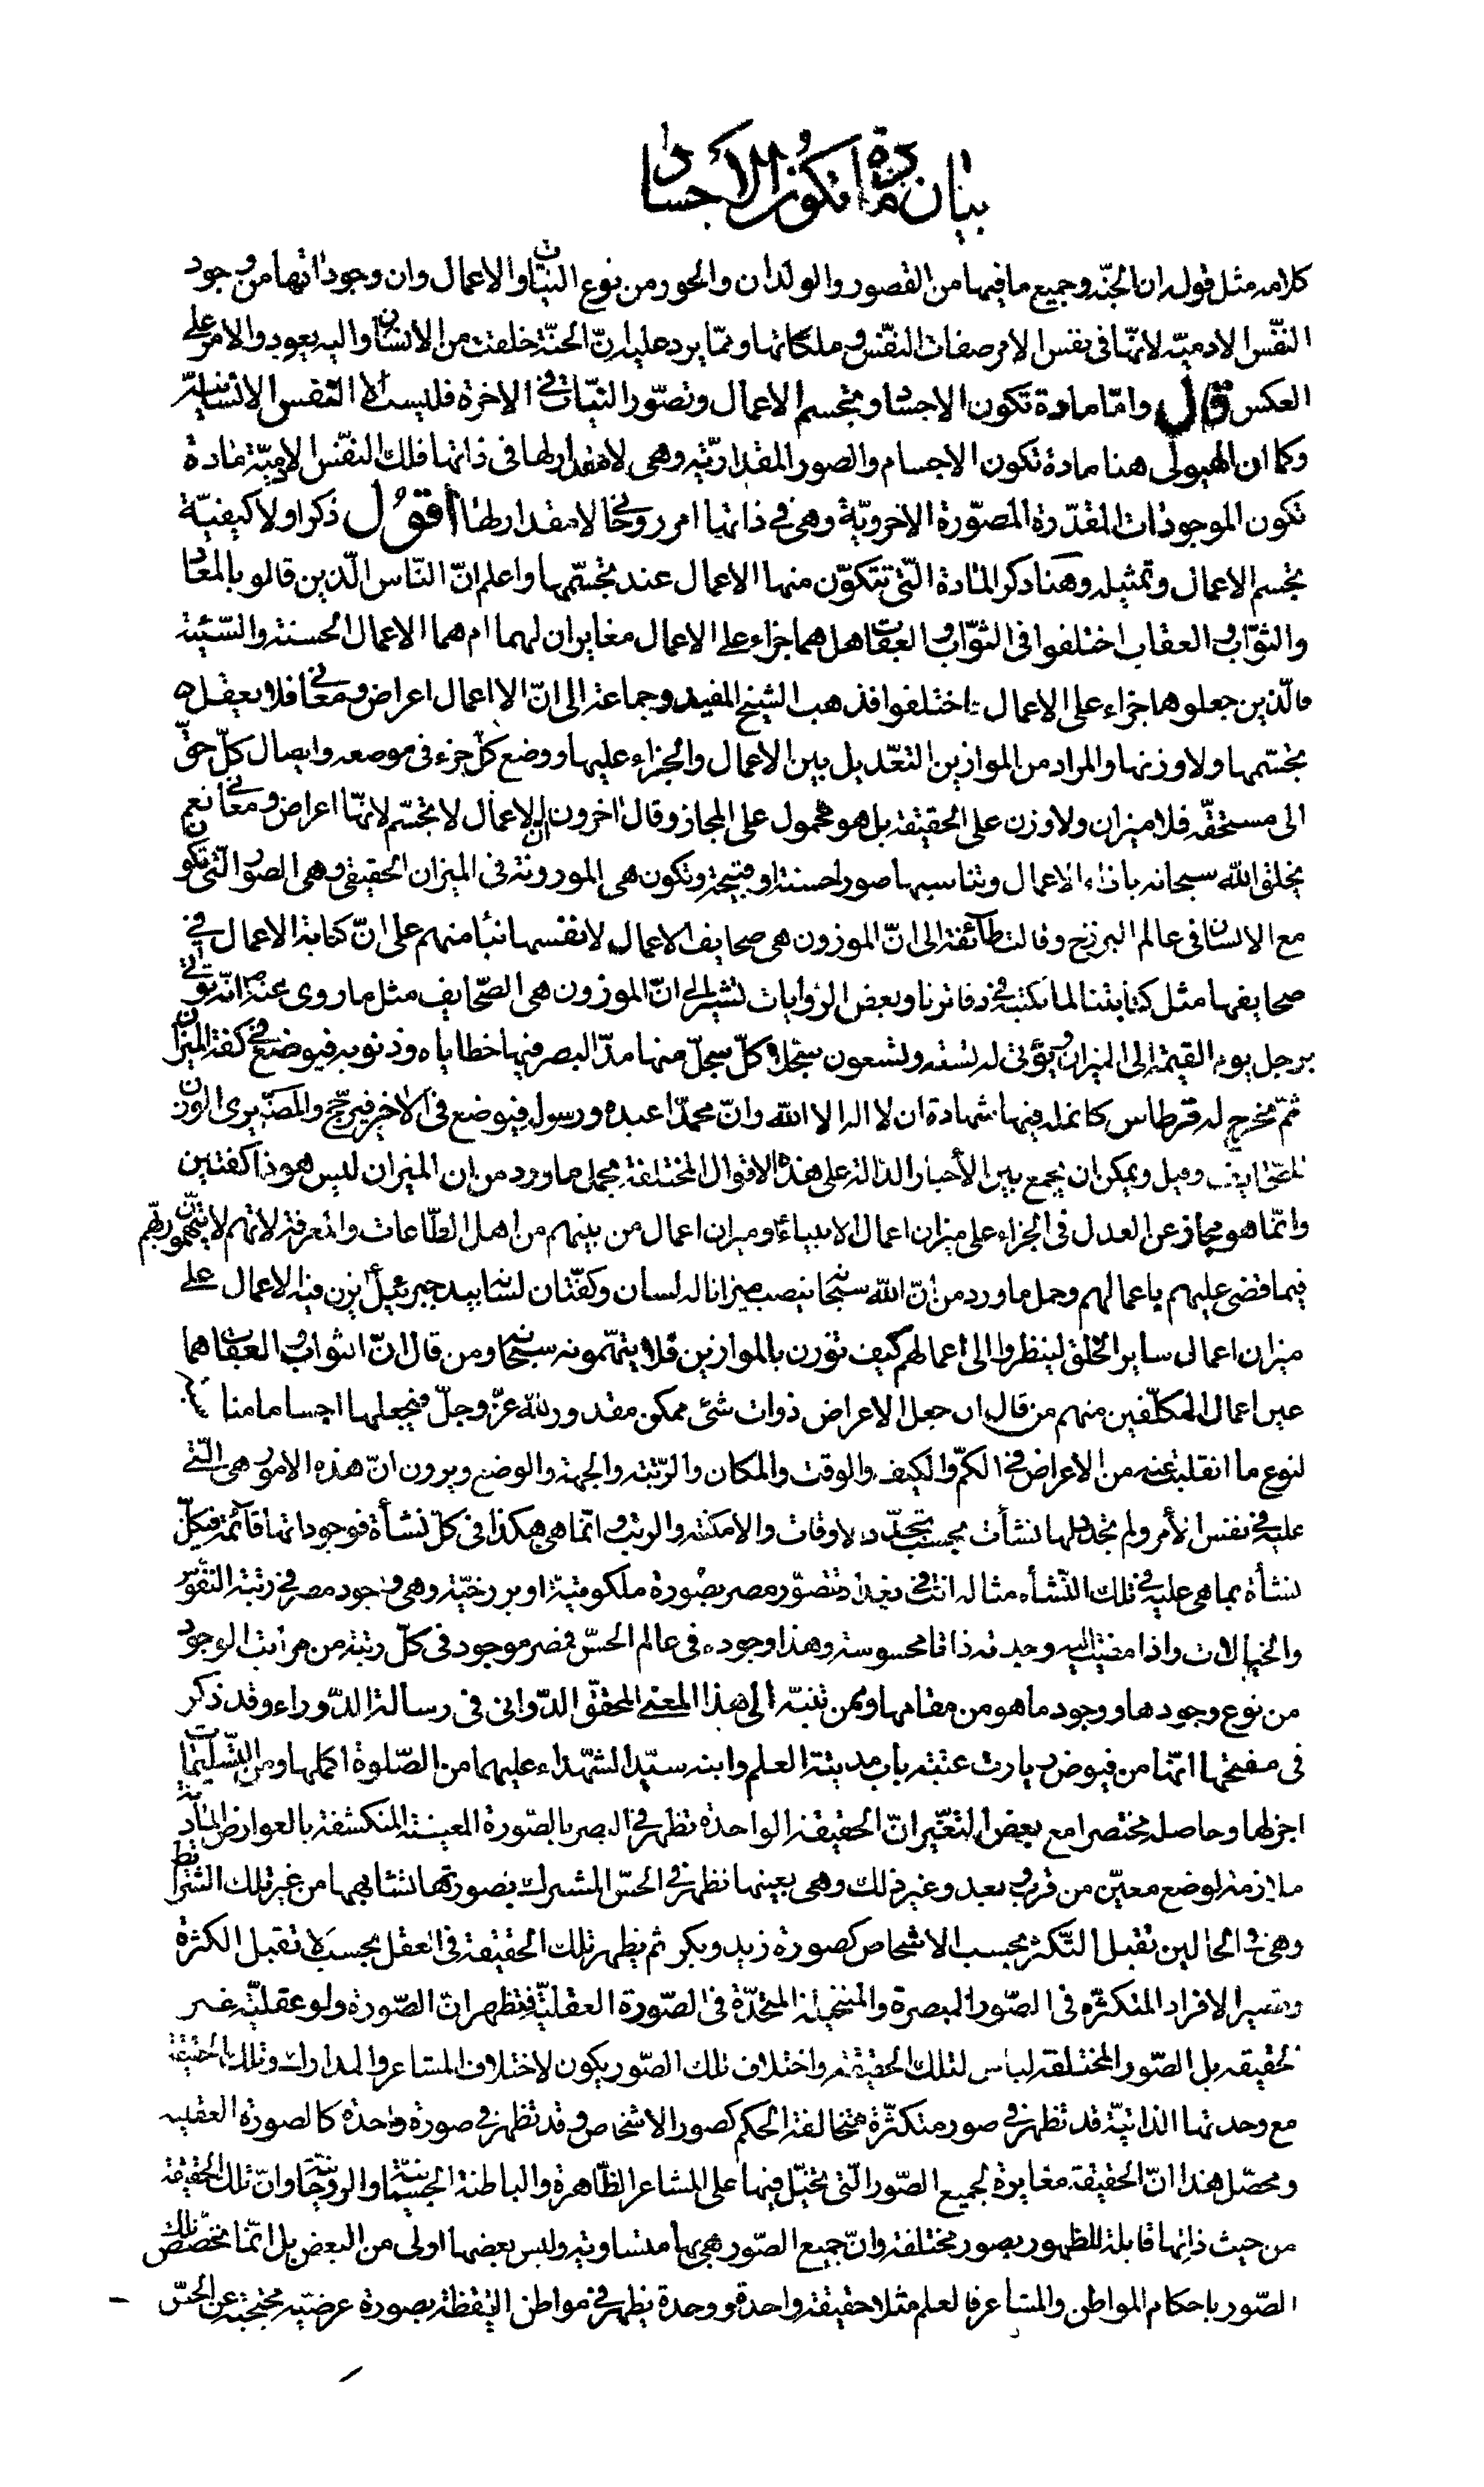 بيان مادة تكون الأجساد
كلامه مثل قوله ان الجنّة وجميع ما فيها من القصور والولدان والحور من نوع النيّات والاعمال وان وجوداتها من وجود
النفّس الادميّة لانّها فى نفس الامر صفات النفّس وملكاتها وممّا يرد عليه انّ الجنّة خلقت من الانسان واليه يعود والامر على
العكس قال وامّا مادة تكون الاجساد وتجسم الاعمال وتصّور النيّات فى الاخرة فليست الا النفس الانسانيّة
وكما ان الهيولى هنا مادة تكون الاجسام والصور المقداريّة وهى لا مقدار لها فى ذاتها فلك النفّس الادميّة مادة
تكون الموجودات المقدّرة المصّورة الاخرويّة وهى فى ذاتها امر روحانى لا مقدار لها اقول ذكر اولا كيفيّة
تجسم الاعمال وتمثيله وهنا ذكر المادة الّتى تتكوّن منها الاعمال عند تجسّمها واعلم انّ النّاس الّذين قالو بالمعاد
والثوّاب والعقاب اختلفوا فى الثوّاب والعقاب هل هما جزاء على الاعمال مغايران لهما ام هما الاعمال الحسنة والسّيئة
فالّذين جعلوهما جزاء على الاعمال اختلفوا فذهب الشيخ المفيد وجماعة الى انّ الااعمال اعراض ومعانى فلا يعقل
تجسّمها ولا وزنها والمراد من الموازين التعّديل بين الاعمال والجزاء عليها ووضع كلّ جزء فى موضعه وايصال كلّ حقّ
الى مستحقّه فلا ميزان ولا وزن على الحقيقة بل هو محمول على المجاز وقال اخرون ان الاعمال لا تجسّم لانّها اعراض ومعانى نعم
يخلق الله سبحانه بازاء الاعمال وتناسبها صورا حسنة او قبيحة وتكون هى الموزونة فى الميزان الحقيقى وهى الصور الّتى تكون
مع الانسان فى عالم البرزخ وقالت طآئفة الى انّ الموزون هى صحايف الاعمال لا نفسها بناء منهم على انّ كتابة الاعمال فى
صحايفها مثل كتابتنا لما نكتبه فى دفاترنا وبعض الرّوايات تشير الى انّ الموزون هى الصّحايف مثل ما روى عنه ص انّه يؤتى
برجل يوم القيمة الى الميزان ويؤتى له تسعة وتسعون سجلا كلّ سجلّ منها مدّ البصر فيها خطاياه وذنوبه فيوضع فى كفة الميزان
ثمّ يخرج له قرطاس كانملة فيها شهادة ان لا اله الا الله وانّ محمدّا عبده ورسوله فيوضع فى الاخر فيرجّح والمصنّف يرى الوزن
للصّحايف وميل ويمكن ان يجمع بين الأخبار الدّالة على هذه الاقوال المختلفة بحمل ما ورد من ان الميزان ليس هو ذا كفتين
وانّما هو مجاز عن العدل فى الجزاء على ميزان اعمال الانبياء وميزان اعمال من بينهم من اهل الطّاعات والمعرفة لانّهم لا يتّهمون ربّهم
فيما قضى عليهم باعمالهم وحمل ما ورد من انّ الله سبحانه ينصب ميزانا له لسان وكفّتان لسانه بيد جبرئيل يزن فيه الاعمال على
ميزان اعمال ساير الخلق لينظروا الى اعمالهم كيف توزن بالموازين فلا يتّهمونه سبحانه ومن قال انّ الثواب والعقاب هما
عين اعمال المكلّفين منهم من قال ان جعل الاعراض ذوات شئ ممكن مقدور لله عزّ وجلّ فيجعلها اجساما منا
لنوع ما انقلبت عنه من الاعراض فى الكمّ والكيف والوقت والمكان والرّتبة والجهة والوضع ويرون انّ هذه الامور هى الّتى
عليه فى نفس الأمر ولم تجدد لها نشأت بحسب تجدّد الاوقات والامكنة والرتب وانّما هى هكذا فى كلّ نشأة فوجوداتها قآئمة فى كلّ
نشأة بما هى عليه فى تلك النّشأه مثاله انت فى بغداد تتصوّر مصر بصورة ملكوتيّة او برزخيّة وهى وجود مصر فى رتبة النفوس
والخيالات واذا مضيت اليه وجدته ذاتا محسوسة وهذا وجوده فى عالم الحسّ فمصر موجود فى كلّ رتبة من مراتب الوجود
من نوع وجودها ووجود ما هو من مقامها وممن تنبّه الى هذا المعنى المحقّق الدّوانى فى رسالة الزّوراء وقد ذكر
فى مفتحها انّها من فيوض زيارت عتبة باب مدينة العلم وابنه سيّد الشّهداء عليهما من الصّلوة اكملها ومن التّسليمات
اجزلها وحاصله مختصرا مع بعض التغّير انّ الحقيقة الواحدة تظهر فى البصر بالصّورة المعينة المنكشفة بالعوارض المادّية
ملازمة لوضع معيّن من قرب وبعد وغير ذلك وهى بعينها تظهر فى الحسّ المشترك بصورتها تشابهها من غير تلك الشرائط
وهى فى الحالين تقبل التّكثر بحسب الاشخاص كصورة زيد وبكر ثم يظهر تلك الحقيقة فى العقل بحسب لا تقبل الكثرة
وتصير الافراد المتكثّره فى الصّور المبصرة والمتخيلة المتحدّة فى الصّورة العقليّة فتظهر انّ الصّورة ولو عقليّة غير
الحقيقه بل الصّور المختلفة لباس لتلك الحقيقة واختلاف تلك الصّور يكون لاختلاف المشاعر والمدارك وتلك الحقيقة
مع وحدتها الذاتيّة قد تظهر فى صور متكثّرة متخالفة الحكم كصور الاشخاص وقد تظهر فى صورة واحدة كالصورة العقلية
ومحصّل هذا انّ الحقيقة مغايرة لجميع الصّور الّتى تخيّل فيها على المشاعر الظّاهرة والباطنة الجسمانيّة والروحانيّة وانّ تلك الحقيقة
من حيث ذاتها قابلة للظهور بصور مختلفة وانّ جميع الصّور هى بها متساوية وليس بعضها اولى من البعض بل انّما تخصّص تلك
الصّور باحكام المواطن والمشاعر فالعلم مثلا حقيقة واحدة ووحدة يظهر فى مواطن اليقظة بصورة عرضيّة محتجبة عن الحسّ